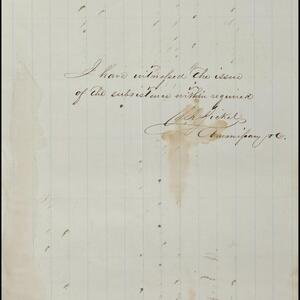 I have witnessed the issue
of the subsistence within required
Commissary &c.